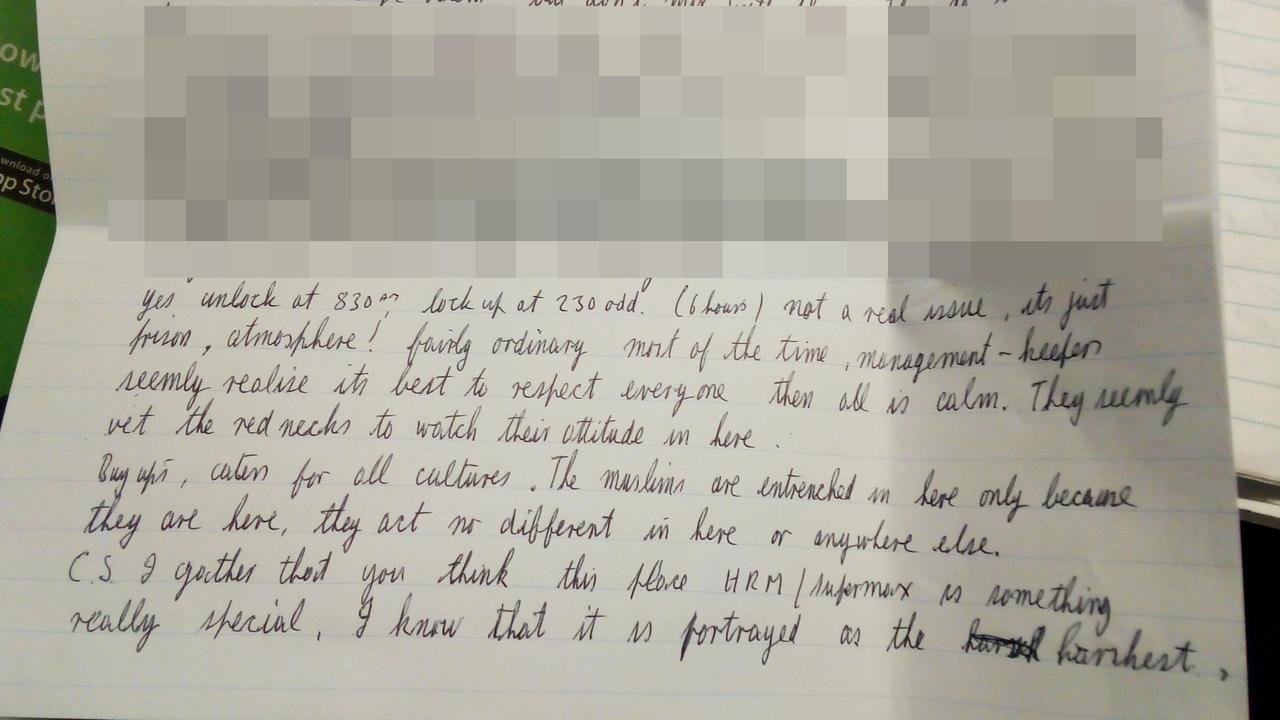 ow
st p
wnload o
pp Sto
yes unlock at 830am lock up at 230 odd. (6 hours) not a real issue, its just
prison, atmosphere! fairly ordinary most of the time, management - keepers
seemly realise its best to respect everyone then all is calm. They seemly
vet the red necks to watch their attitude in here.
Buy ups, caters for all cultures. The muslims are entrenched in here only because
they are here, they act no different in here or anywhere else.
C.S. I gather that you think this place HRM/supermax is something
really special, I know that it is portrayed as the harshest,